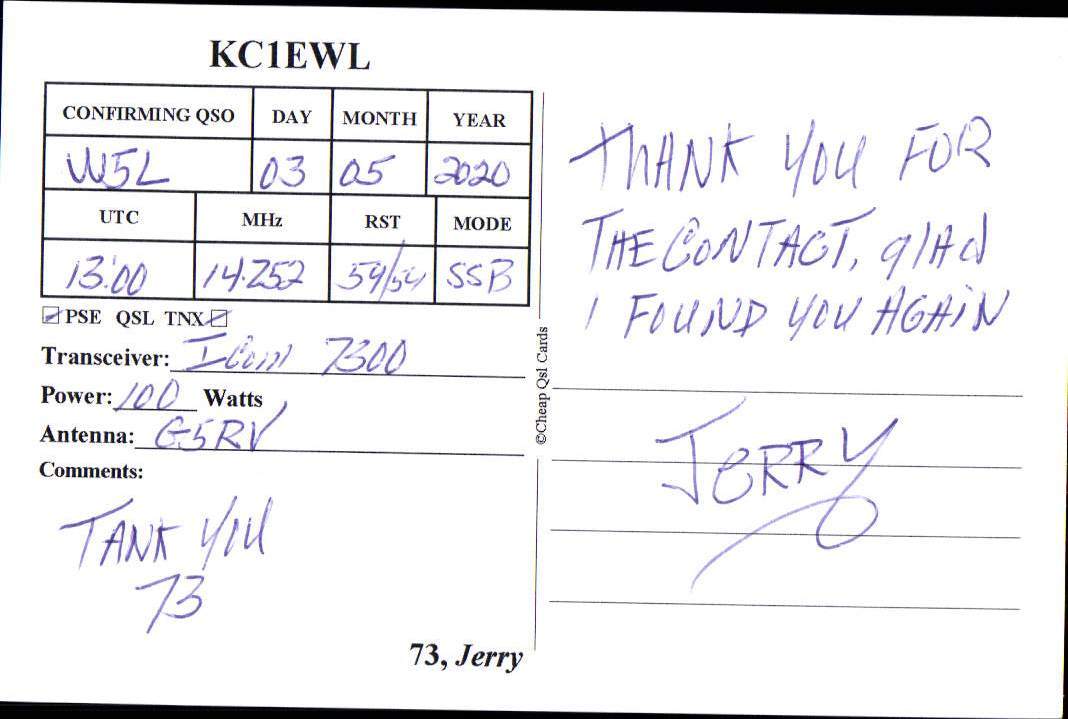 KC1EWL
CONFIRMING QSO DAY MONTH YEAR
W5L 03 05 2020
UTC MHz RST MODE
13:00 14.252 59/59 SSB
PSE QSL TNX
Transceiver: Icom 7300
Power: 100 Watts
Antenna: G5RV
Comments:
TANK YOU
73
73, Jerry
©Cheap Qsl Cards
THANK YOU FOR
THE CONTACT, glAd
I FOUND YOU AGAIN
JERRY